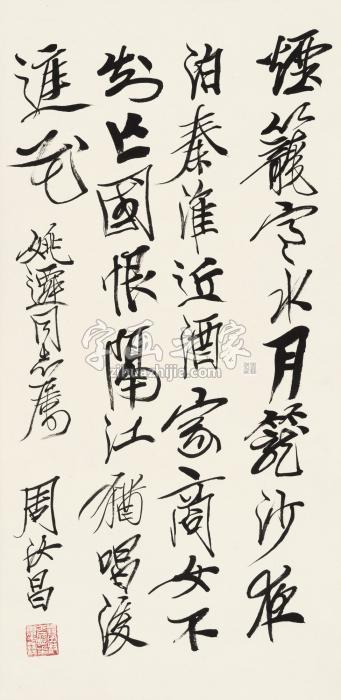 煙籠寒水月籠沙夜
泊秦淮近酒家商女不
知亡國恨隔江猶唱後
庭花
姚遷同志屬
周汝昌